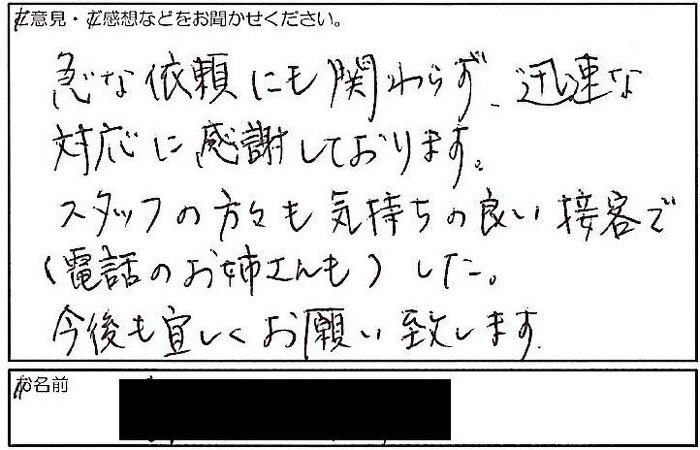 ご意見・ご感想などをお聞かせください。
急な依頼にも関わらず、迅速な
対応に感謝しております。
スタッフの方々も気持ちの良い接客で
(電話のお姉さんも)した。
今後も宜しくお願い致します.
お名前